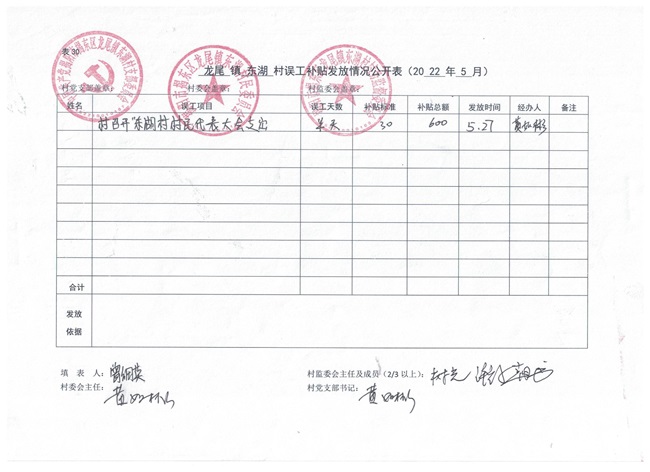 表30
龙尾 镇 东湖 村误工补贴发放情况公开表（20 22 年 5 月）
村党支部盖章： 村委会盖章： 村监委会盖章：
姓名 误工项目 误工天数 补贴标准 补贴总额 发放时间 经办人 备注
村召开东湖村村民代表大会支出 半天 30 600 5.27
合计
发放
依据
填 表 人： 村监委会主任及成员（2/3 以上）：
村委会主任： 村党支部书记：